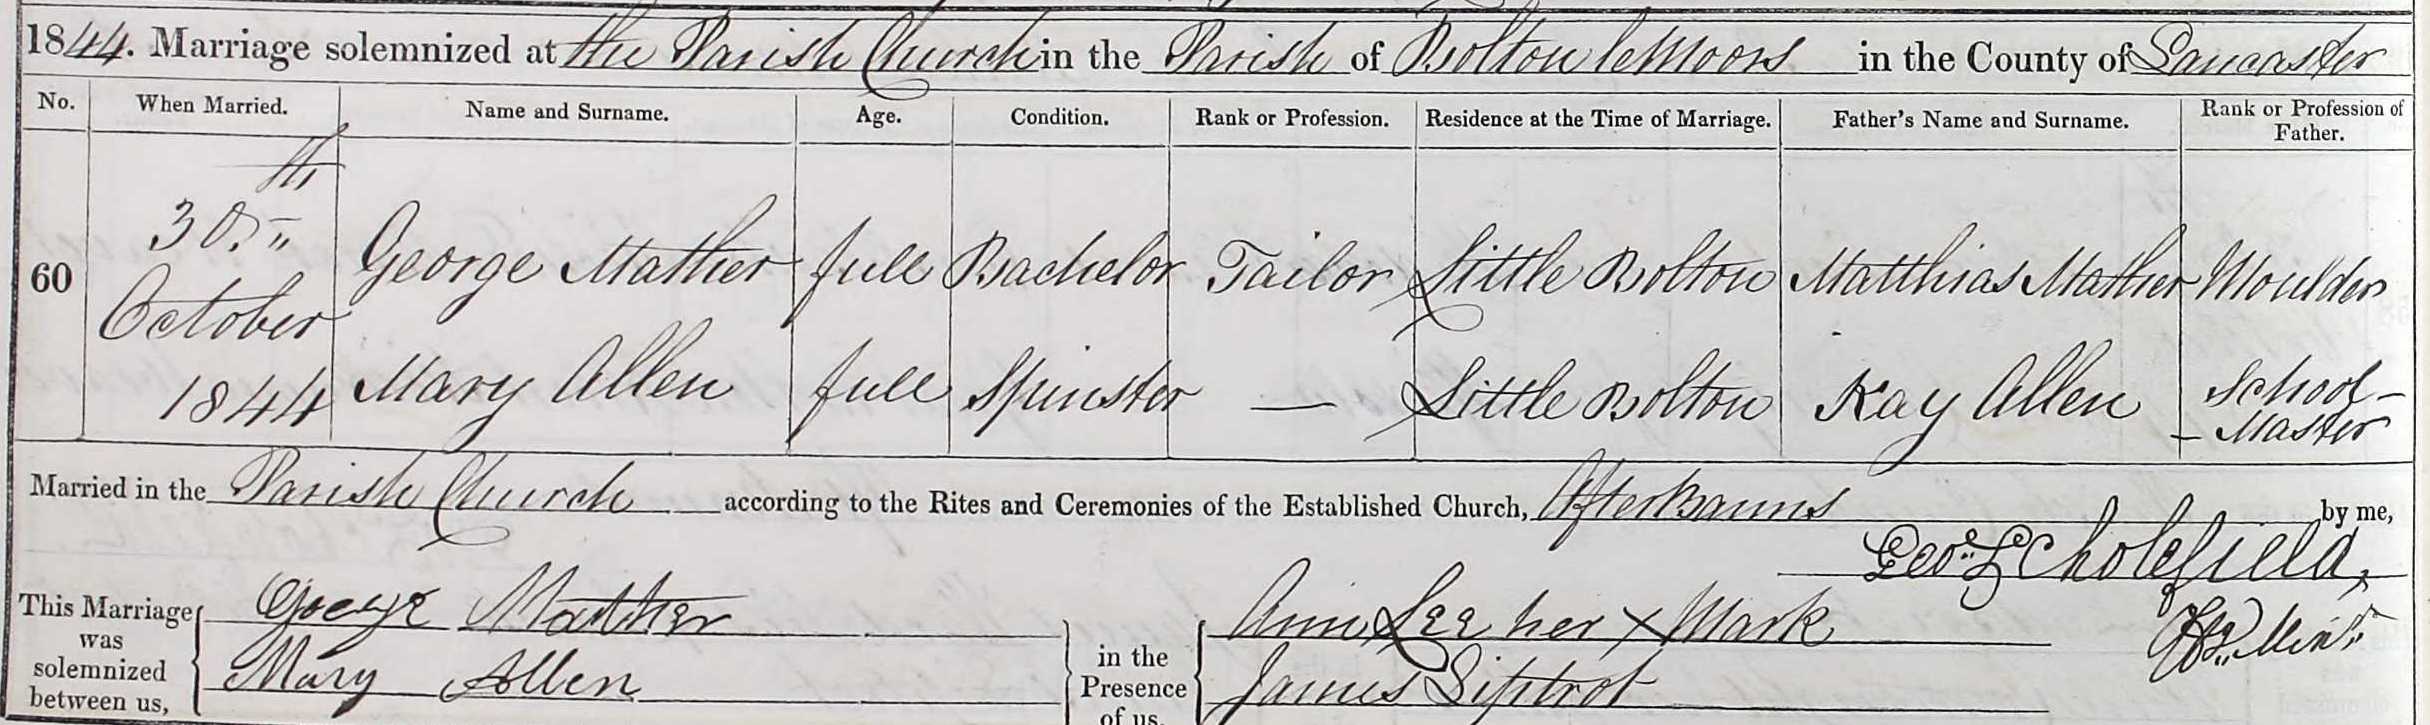 1844. Marriage solemnized at the Parish Church in the Parish of Bolton le Moors in the County of Lancaster
No. When Married. Name and Surname. Age. Condition. Rank or Profession. Residence at the Time of Marriage. Father's Name and Surname. Rank or Profession of Father.
60 30th October 1844 George Mather full Bachelor Tailor Little Bolton Matthias Mather Moulder
Mary Allen full Spinster — Little Bolton Kay Allen School-Master
Married in the Parish Church according to the Rites and Ceremonies of the Established Church, After Banns by me,
Geo: L Scholefield,
Offg. Minr.
This Marriage was solemnized between us, George Mather
Mary Allen
in the Presence of us, Ann Lee her X Mark
James Liptrot